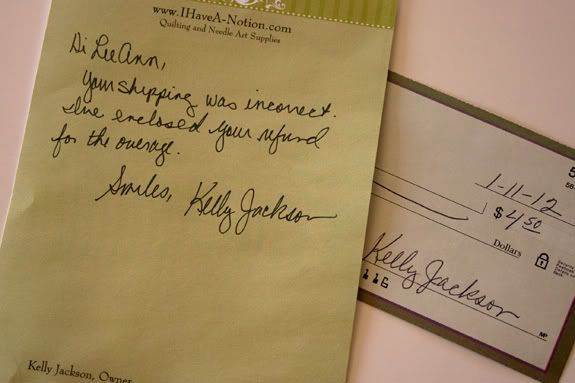 www.IHaveA-Notion.com
Quilting and Needle Art Supplies
Hi LeeAnn,
Your shipping was incorrect.
I've enclosed your refund
for the overage.
Smiles, Kelly Jackson
Kelly Jackson, Owner
1-11-12
$ 4 50
Dollars
Kelly Jackson
116
MP